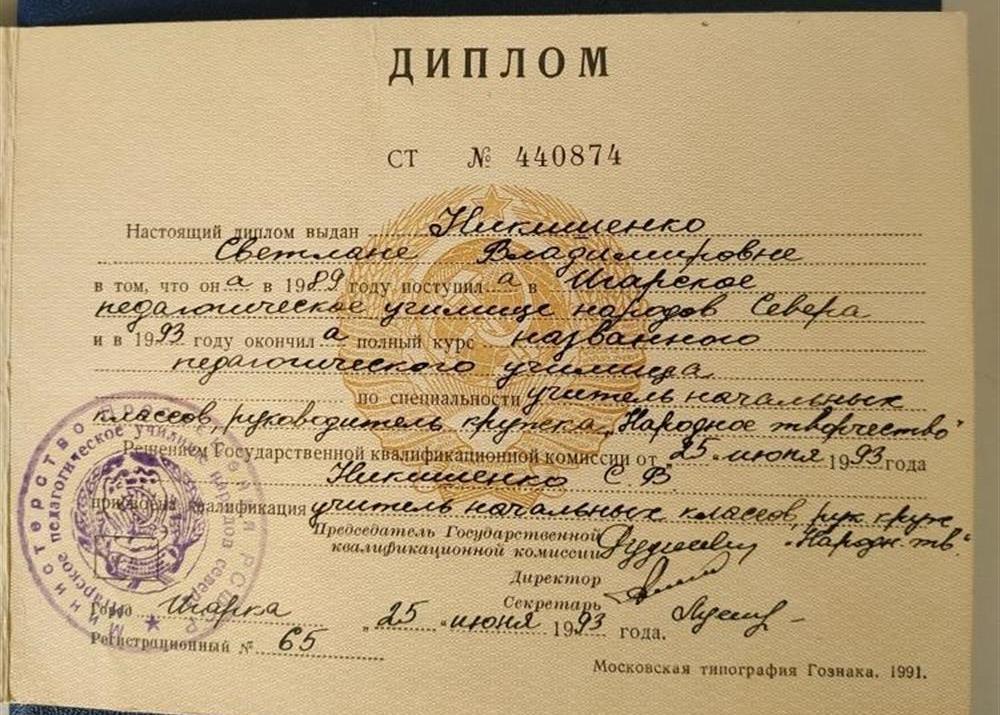 ДИПЛОМ
СТ № 440874
Настоящий диплом выдан Никишенко
Светлане Владимировне
в том, что она в 1989 году поступила в Игарское
педагогическое училище народов Севера
и в 1993 году окончила полный курс названного
педагогического училища
по специальности учитель начальных
классов, руководитель кружка „Народное творчество"
Решением Государственной квалификационной комиссии от „25" июня 1993 года
Никишенко С.В.
присвоена квалификация учитель начальных классов, рук. круж.
„Народн. тв."
Председатель Государственной
квалификационной комиссии
Директор
Секретарь
Город Игарка „25" июня 1993 года.
Регистрационный № 65
Московская типография Гознака. 1991.
Министерство РСФСР
Игарское педагогическое училище народов севера